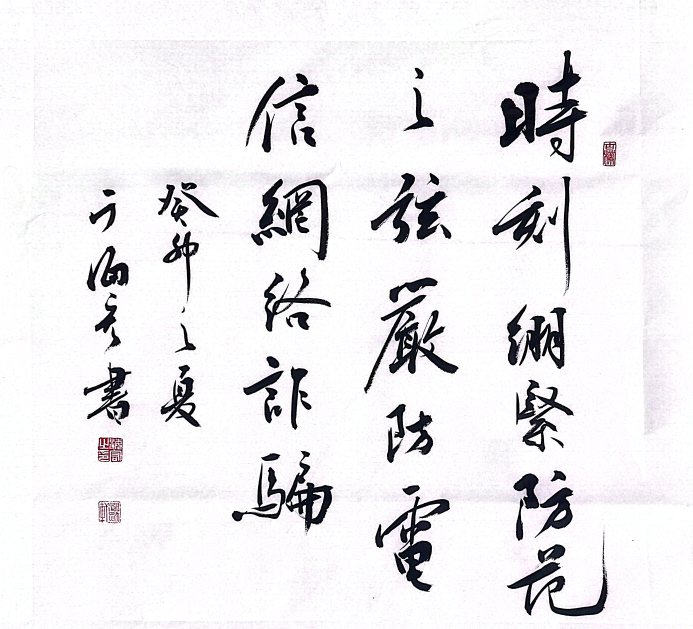 時刻繃緊防范
之弦嚴防電
信網絡詐騙
癸卯之夏
于海
書